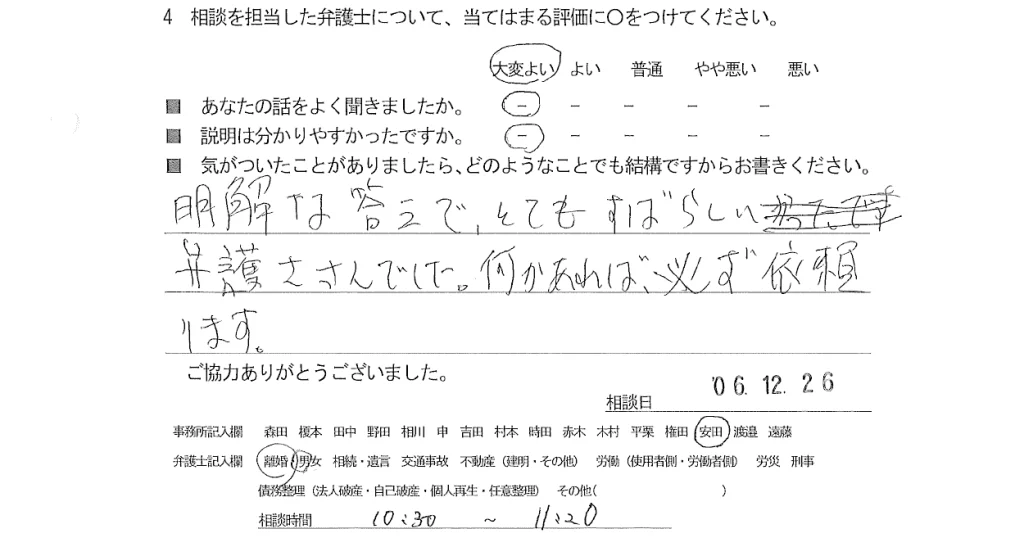 4 相談を担当した弁護士について、当てはまる評価に〇をつけてください。
大変よい よい 普通 やや悪い 悪い
■ あなたの話をよく聞きましたか。 − − − − −
■ 説明は分かりやすかったですか。 − − − − −
■ 気がついたことがありましたら、どのようなことでも結構ですからお書きください。
明解な答えで、とてもすばらしい
弁護士さんでした。何かあれば、必ず依頼
します。
ご協力ありがとうございました。
相談日 '06.12.26
事務所記入欄 森田 榎本 田中 野田 相川 申 吉田 村本 時田 赤木 木村 平栗 権田 安田 渡邉 遠藤
弁護士記入欄 離婚(男女 相続・遺言 交通事故 不動産(建明・その他) 労働(使用者側・労働者側) 労災 刑事
債務整理(法人破産・自己破産・個人再生・任意整理) その他( )
相談時間 10:30 ~ 11:20